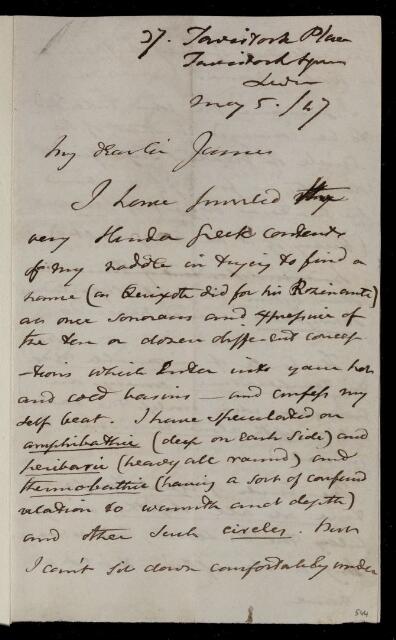 27. Tavistock Place
Tavistock Square
London
May 5. /47
My dear Sir James
I have
very slender Greek contents
of my noddle in trying to find a
name (as Quixote did for his Rozinante)
at once sonorous and expressive of
the ten or dozen different concep
-tions which enter into your hot
and cold basins – and confess my
self beat. I have speculated on
amphibathic (deep on each side) and
peribaric (heavy all round) and
thermobathic (having a sort of confused
relation to warmth and depth)
and other such circles. But
I can't sit down comfortably under
544